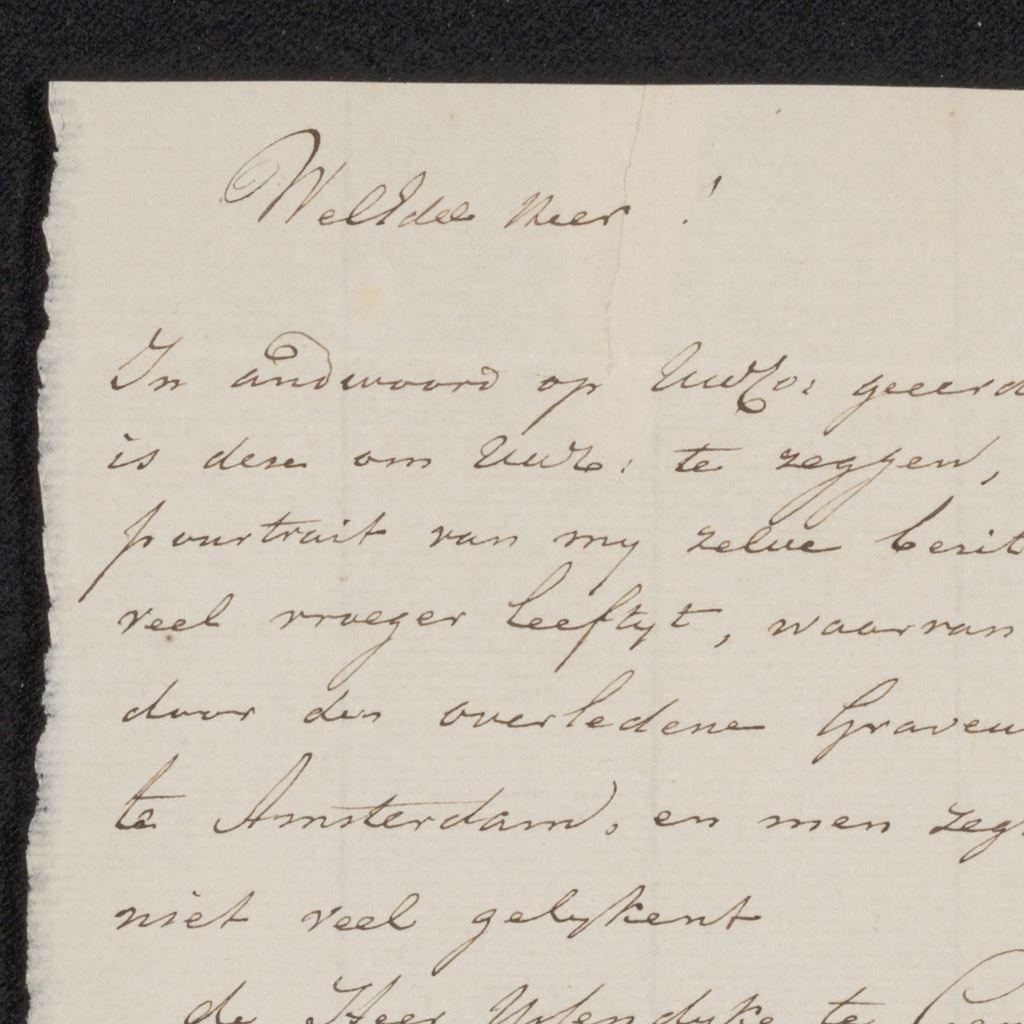 WelEdele Heer !
In andwoord op UwEd: geeerd
is dese om UwE: te zeggen,
pourtrait van my zelve besit
veel vroeger leeftyt, waarvan
door den overledene Graveu
te Amsterdam, en men zeg
niet veel gelykent
de Heer te